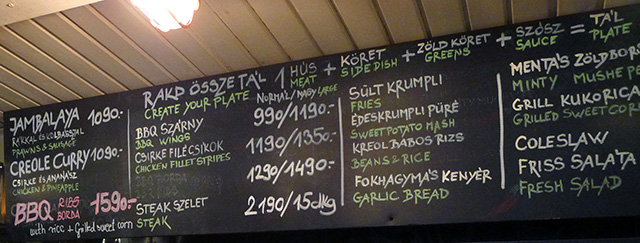 JAMBALAYA 1090.-
RÁKKAL ÉS KOLBÁSSZAL
PRAWNS & SAUSAGE
CREOLE CURRY 1090.-
CSIRKE ÉS ANANÁSZ
CHICKEN & PINEAPPLE
BBQ RIBS 1590.-
BORDA
with rice + Grilled sweet corn
RAKD ÖSSZE TÁ'L
CREATE YOUR PLATE
1 HÚS + KÖRET + ZÖLD KÖRET + SZÓSZ = TÁ'L
MEAT SIDE DISH GREENS SAUCE PLATE
NORMÁL/NAGY LARGE
BBQ SZÁRNY 990/1190.-
BBQ WINGS
CSIRKE FILÉ CSÍKOK 1190/1350.-
CHICKEN FILLET STRIPES
1290/1490.-
STEAK SZELET 2190/15dkg
STEAK
SÜLT KRUMPLI
FRIES
ÉDESKRUMPLI PÜRÉ
SWEET POTATO MASH
KREOL BABOS RIZS
BEANS & RICE
FOKHAGYMÁ'S KENYÉR
GARLIC BREAD
MENTÁ'S ZÖLDBO
MINTY MUSHE PE
GRILL KUKORICA
GRILLED SWEET COR
COLESLAW
FRISS SALÁ'TA
FRESH SALAD